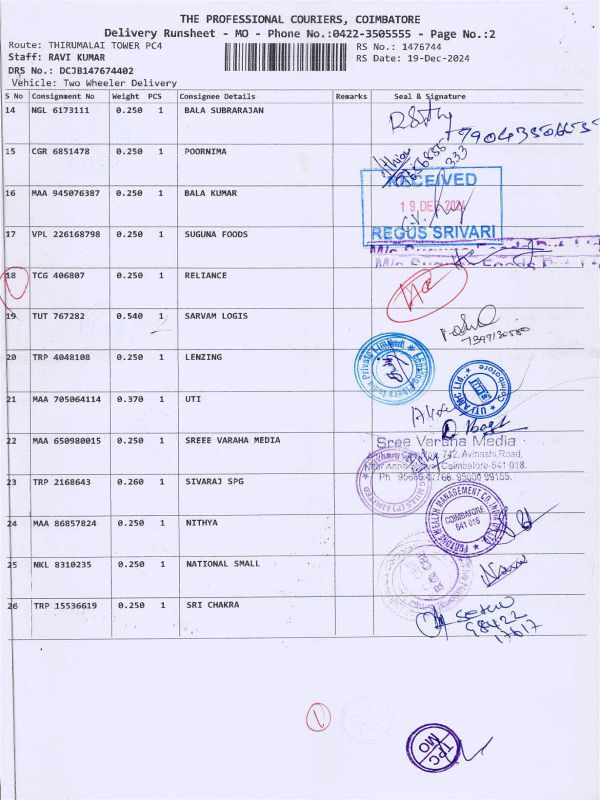 THE PROFESSIONAL COURIERS, COIMBATORE
Delivery Runsheet - MO - Phone No.:0422-3505555 - Page No.:2
Route: THIRUMALAI TOWER PC4 RS No.: 1476744
Staff: RAVI KUMAR RS Date: 19-Dec-2024
DRS No.: DCJB147674402
Vehicle: Two Wheeler Delivery
S No Consignment No Weight PCS Consignee Details Remarks Seal & Signature
14 NGL 6173111 0.250 1 BALA SUBRARAJAN
15 CGR 6851478 0.250 1 POORNIMA
333
16 MAA 945076387 0.250 1 BALA KUMAR
RECEIVED
19 DEC 2024
REGUS SRIVARI
17 VPL 226168798 0.250 1 SUGUNA FOODS
18 TCG 406807 0.250 1 RELIANCE
19 TUT 767282 0.540 1 SARVAM LOGIS
20 TRP 4048108 0.250 1 LENZING
21 MAA 705064114 0.370 1 UTI
UTI AMC Ltd.,
Coimbatore
22 MAA 650980015 0.250 1 SREEE VARAHA MEDIA
Sree Varaha Media
742, Avinashi Road,
Coimbatore-641 018.
23 TRP 2168643 0.260 1 SIVARAJ SPG
24 MAA 86857824 0.250 1 NITHYA
COIMBATORE
641 018
25 NKL 8310235 0.250 1 NATIONAL SMALL
26 TRP 15536619 0.250 1 SRI CHAKRA
98422
17617
1
TPC
MO